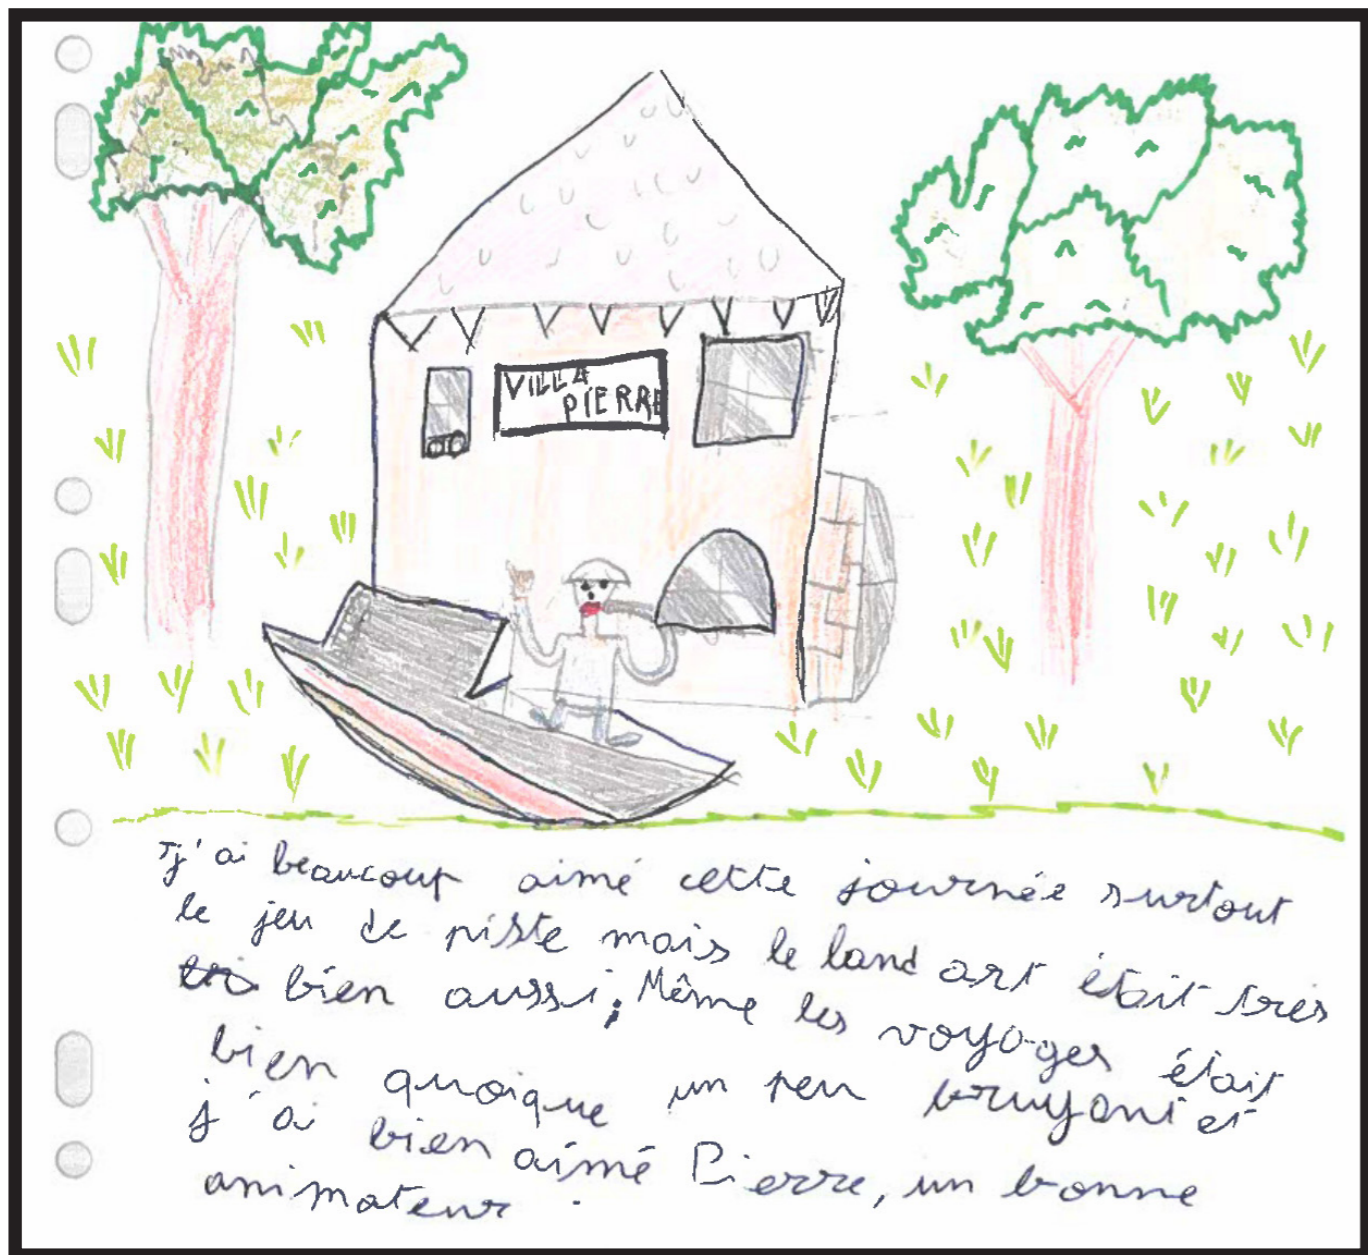 VILLA
PIERRE
j'ai beaucoup aimé cette journée surtout
le jeu de piste mais le land art était très
bien aussi; Même les voyages était
bien quoique un peu bruyant et
j'ai bien aimé Pierre, un bonne
animateur.